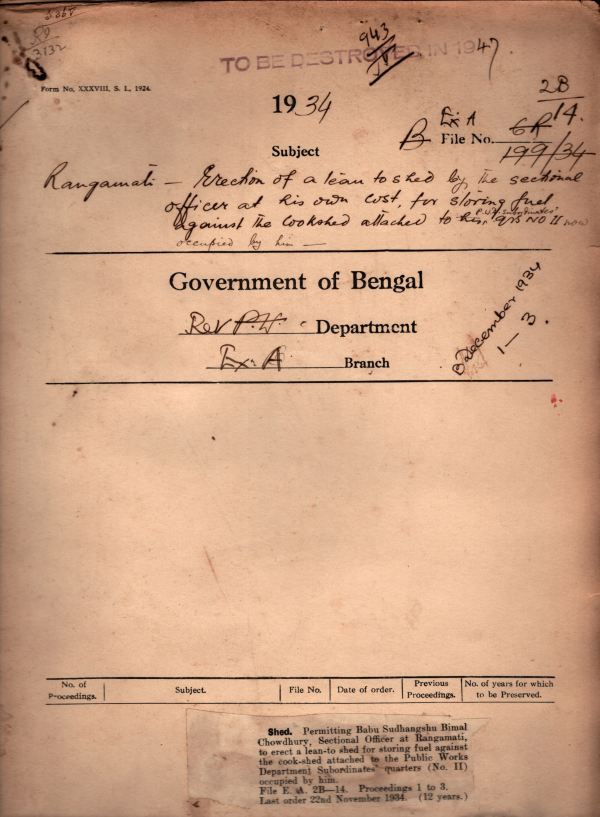 3132
943
TO BE DESTROYED IN 1947
Form No, XXXVIII, S. I., 1924.
1934
2B
14.
Ex A
B File No. 6R
199/34
Subject
Rangamati — Erection of a lean to shed by the sectional
officer at his own cost, for storing fuel
against the Cookshed attached to P.W. Subordinates' qrs No II now
occupied by him —
Government of Bengal
Rev P.W. Department
Ex. A Branch
B December 1934
1—3.
No. of Proceedings. Subject. File No. Date of order. Previous Proceedings. No. of years for which to be Preserved.
Shed. Permitting Babu Sudhangshu Bimal
Chowdhury, Sectional Officer at Rangamati,
to erect a lean-to shed for storing fuel against
the cook-shed attached to the Public Works
Department Subordinates' quarters (No. II)
occupied by him.
File E. A. 2B—14. Proceedings 1 to 3.
Last order 22nd November 1934. (12 years.)